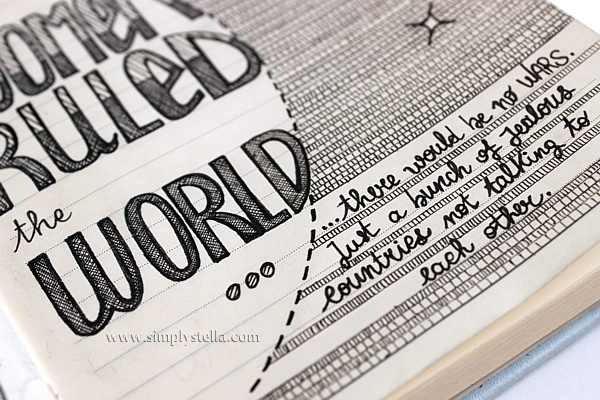 WOMEN
RULED
the
WORLD
...
...there would be no WARS.
Just a bunch of jealous
countries not talking to
each other.
www.simplystella.com